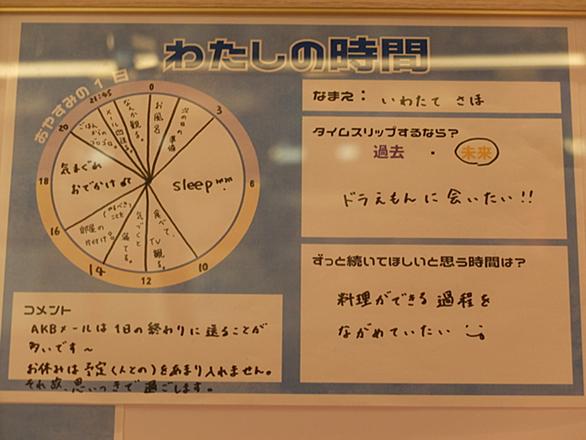 わたしの時間
おやすみの1日
0
3
6
10
12
14
16
18
20
21:45
お風呂
次の日の準備
sleep
食べて、
TV
観る。
気づくと
寝てる。
(やるべき)
こと
部屋の
片付け
気まぐれ
おでかけ
ごはん
からの
ゴロゴロ。
メール
送る。
なんか観る。
なまえ:いわたて さほ
タイムスリップするなら?
過去・未来
ドラえもんに会いたい!!
ずっと続いてほしいと思う時間は?
料理ができる過程を
ながめていたい
コメント
AKBメールは1日の終わりに送ることが
多いです~
お休みは予定(人との)をあまり入れません。
それ故、思いつきで過ごします。